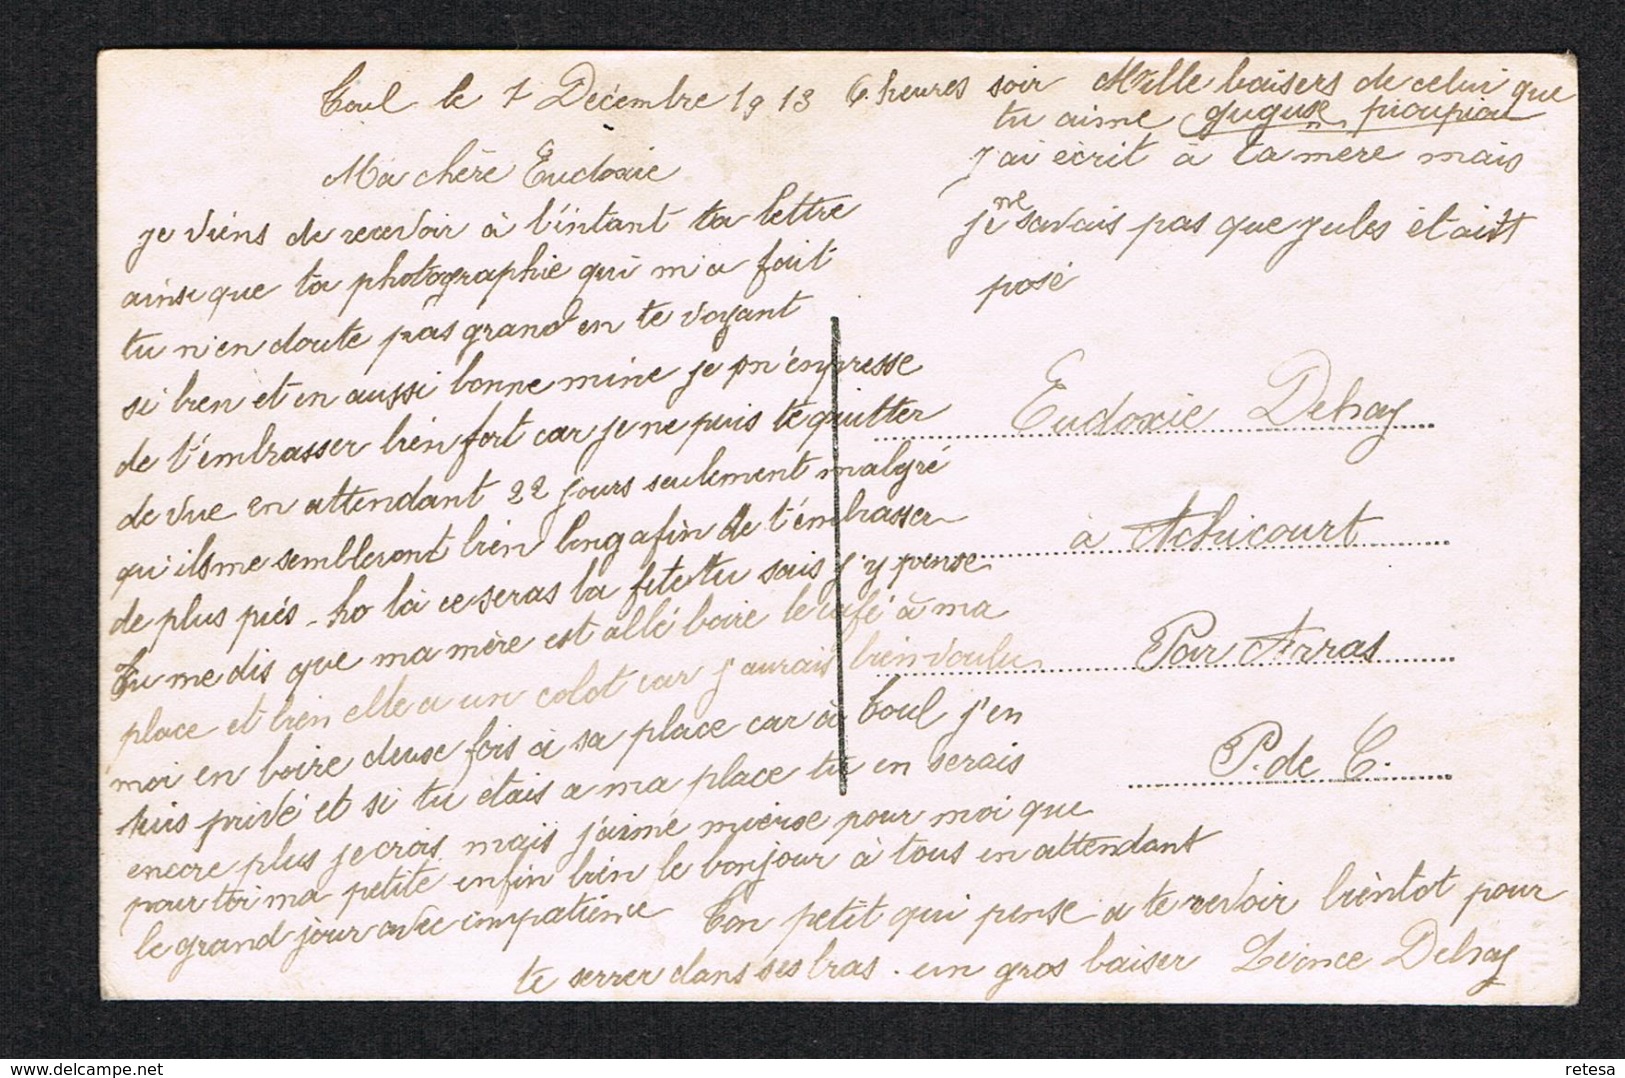 Toul le 7 Décembre 1913 6 heures soir
Ma chère Eudoxie
je viens de recevoir à l'intant ta lettre
ainsi que ta photographie qui m'a fait
tu n'en doute pas grand en te voyant
si bien et en aussi bonne mine je m'enpresse
de t'embrasser bien fort car je ne puis te quitter
de vue en attendant 22 jours seulement malgré
qu'ils me sembleront bien long afin de t'embrasser
de plus près - ho là ce seras la fête tu sais j'y pense
Tu me dis que ma mère est allé boire le café à ma
place et bien elle a un culot car j'aurais bien voulu
moi en boire deuse fois à sa place car à Toul j'en
suis privé et si tu étais a ma place tu en serais
encore plus je crois mais j'aime mieuse pour moi que
pour toi ma petite enfin bien le bonjour à tous en attendant
le grand jour avec impatience Ton petit qui pense a te revoir bientot pour
te serrer dans ses bras. un gros baiser Léonce Delhay
Mille baisers de celui que
tu aime guguse pioupiou
J'ai écrit à ta mère mais
je ne savais pas que Jules était
posé
Eudoxie Delhay
à Achicourt
Par Arras
P. de C.
retesa